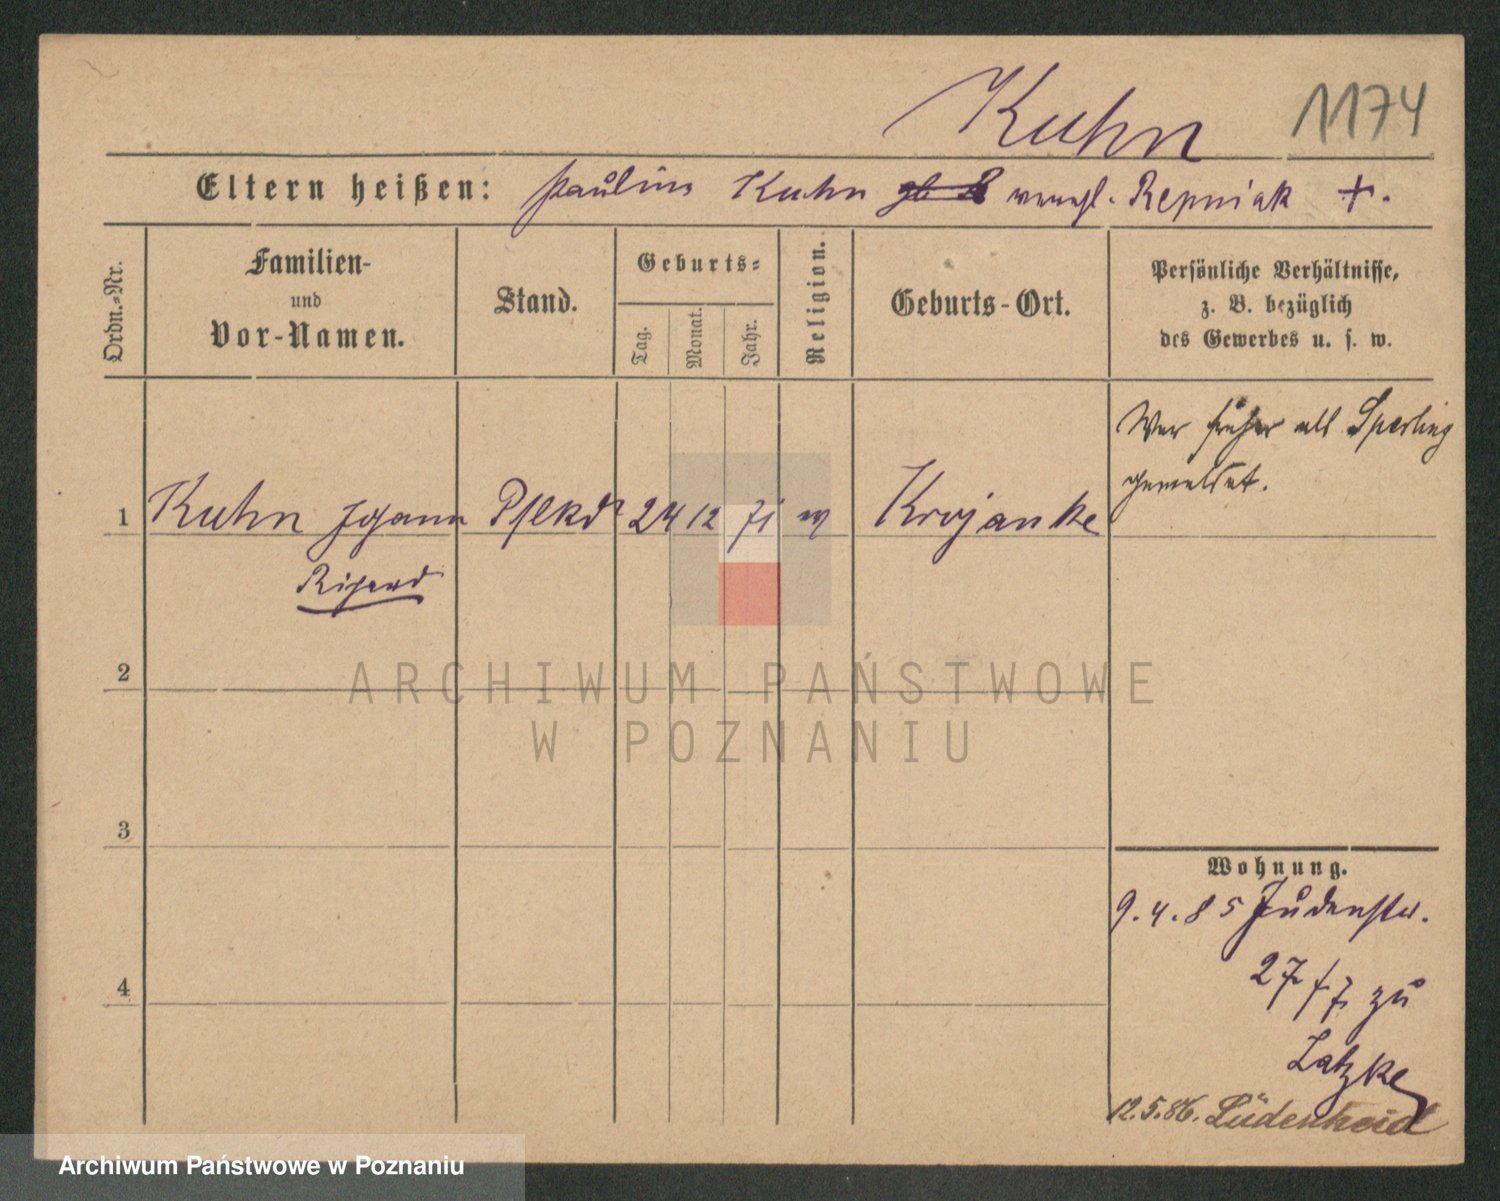 Kuhn 1174
Eltern heißen: Pauline Kuhn verehl. Repniak +.
Ordn.=Nr.
Familien-
und
Vor-Namen.
Stand.
Geburts=
Tag.
Monat.
Jahr.
Religion.
Geburts-Ort.
Persönliche Verhältnisse,
z. B. bezüglich
des Gewerbes u. s. w.
War früher als Sperling
gemeldet.
1 Kuhn Johann 24 12 71 Krojanke
Richard
2
3
4
Wohnung.
9.4.85 Judenstr.
27 zu
Latzke
12.5.86. Lüdenscheid
ARCHIWUM PAŃSTWOWE
W POZNANIU
Archiwum Państwowe w Poznaniu